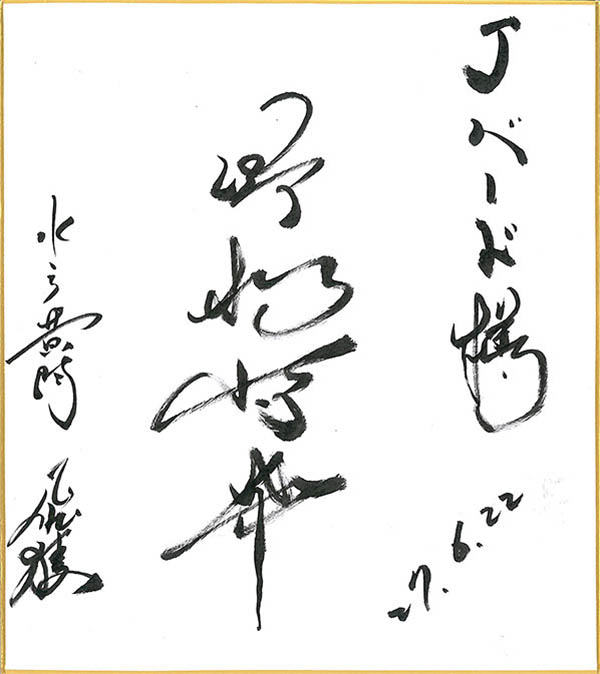 Jベード様
27.6.22
野村将希
水戸黄門 飛猿